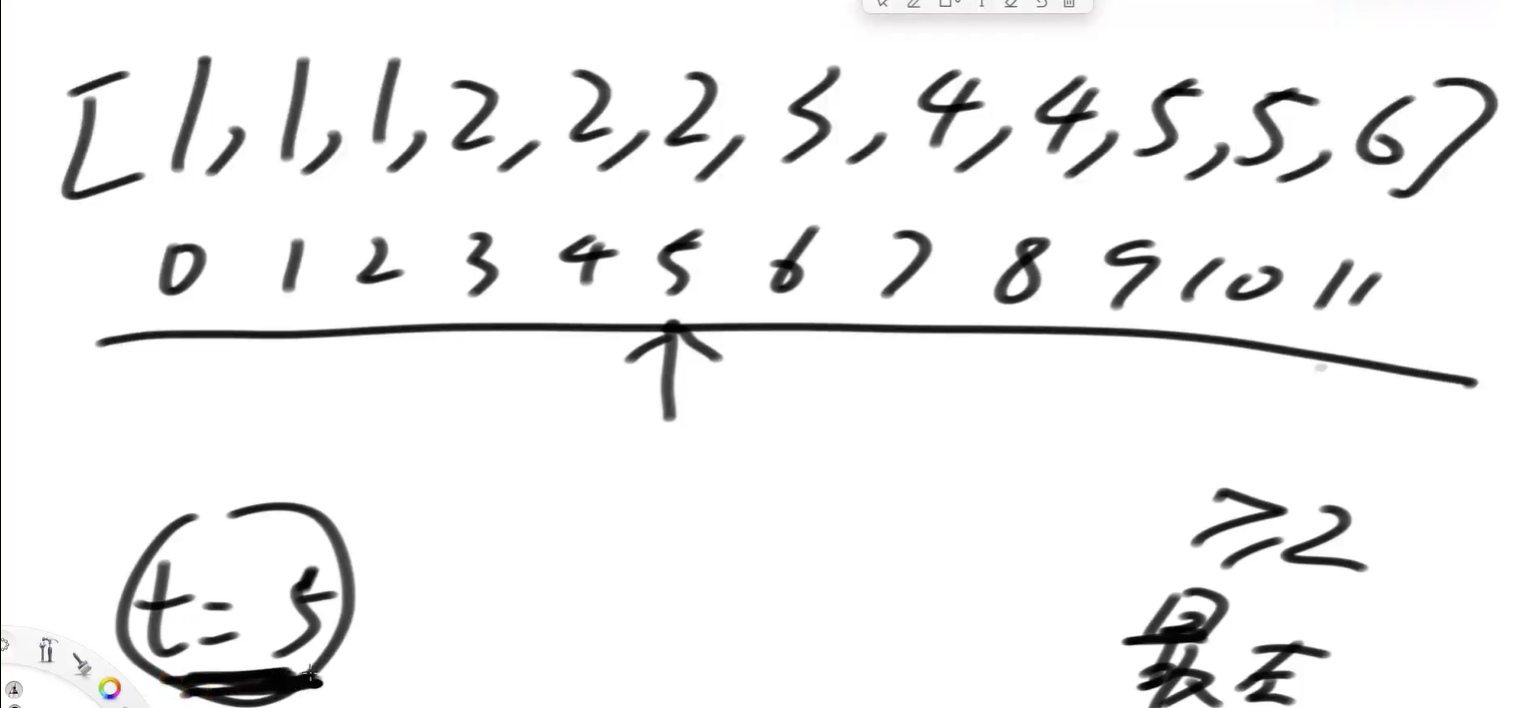 [1,1,1,2,2,2,3,4,4,5,5,6]
0 1 2 3 4 5 6 7 8 9 10 11
t=5
≥2
最左